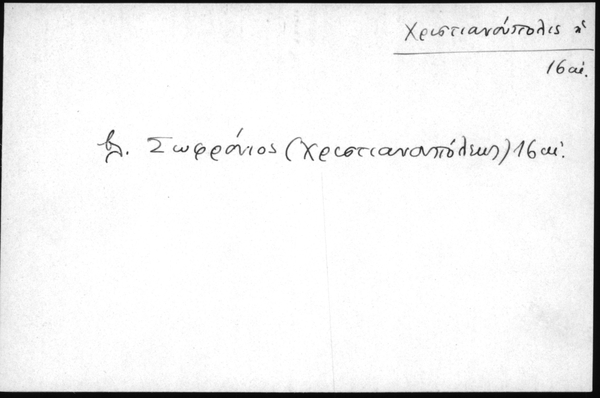 Χριστιανούπολις
16 αἰ.
βλ. Σωφρόνιος (Χριστιανουπόλεως) 16 αἰ.